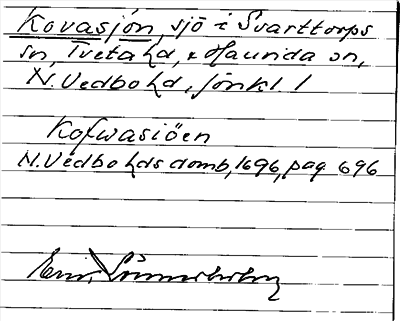 Kovasjön, sjö i Svarttorps
sn, Tveta hd, & Haurida sn,
N. Vedbo hd, Jönk l l
Kofwasiöen
N. Vedbo hds domb, 1696, pag 696